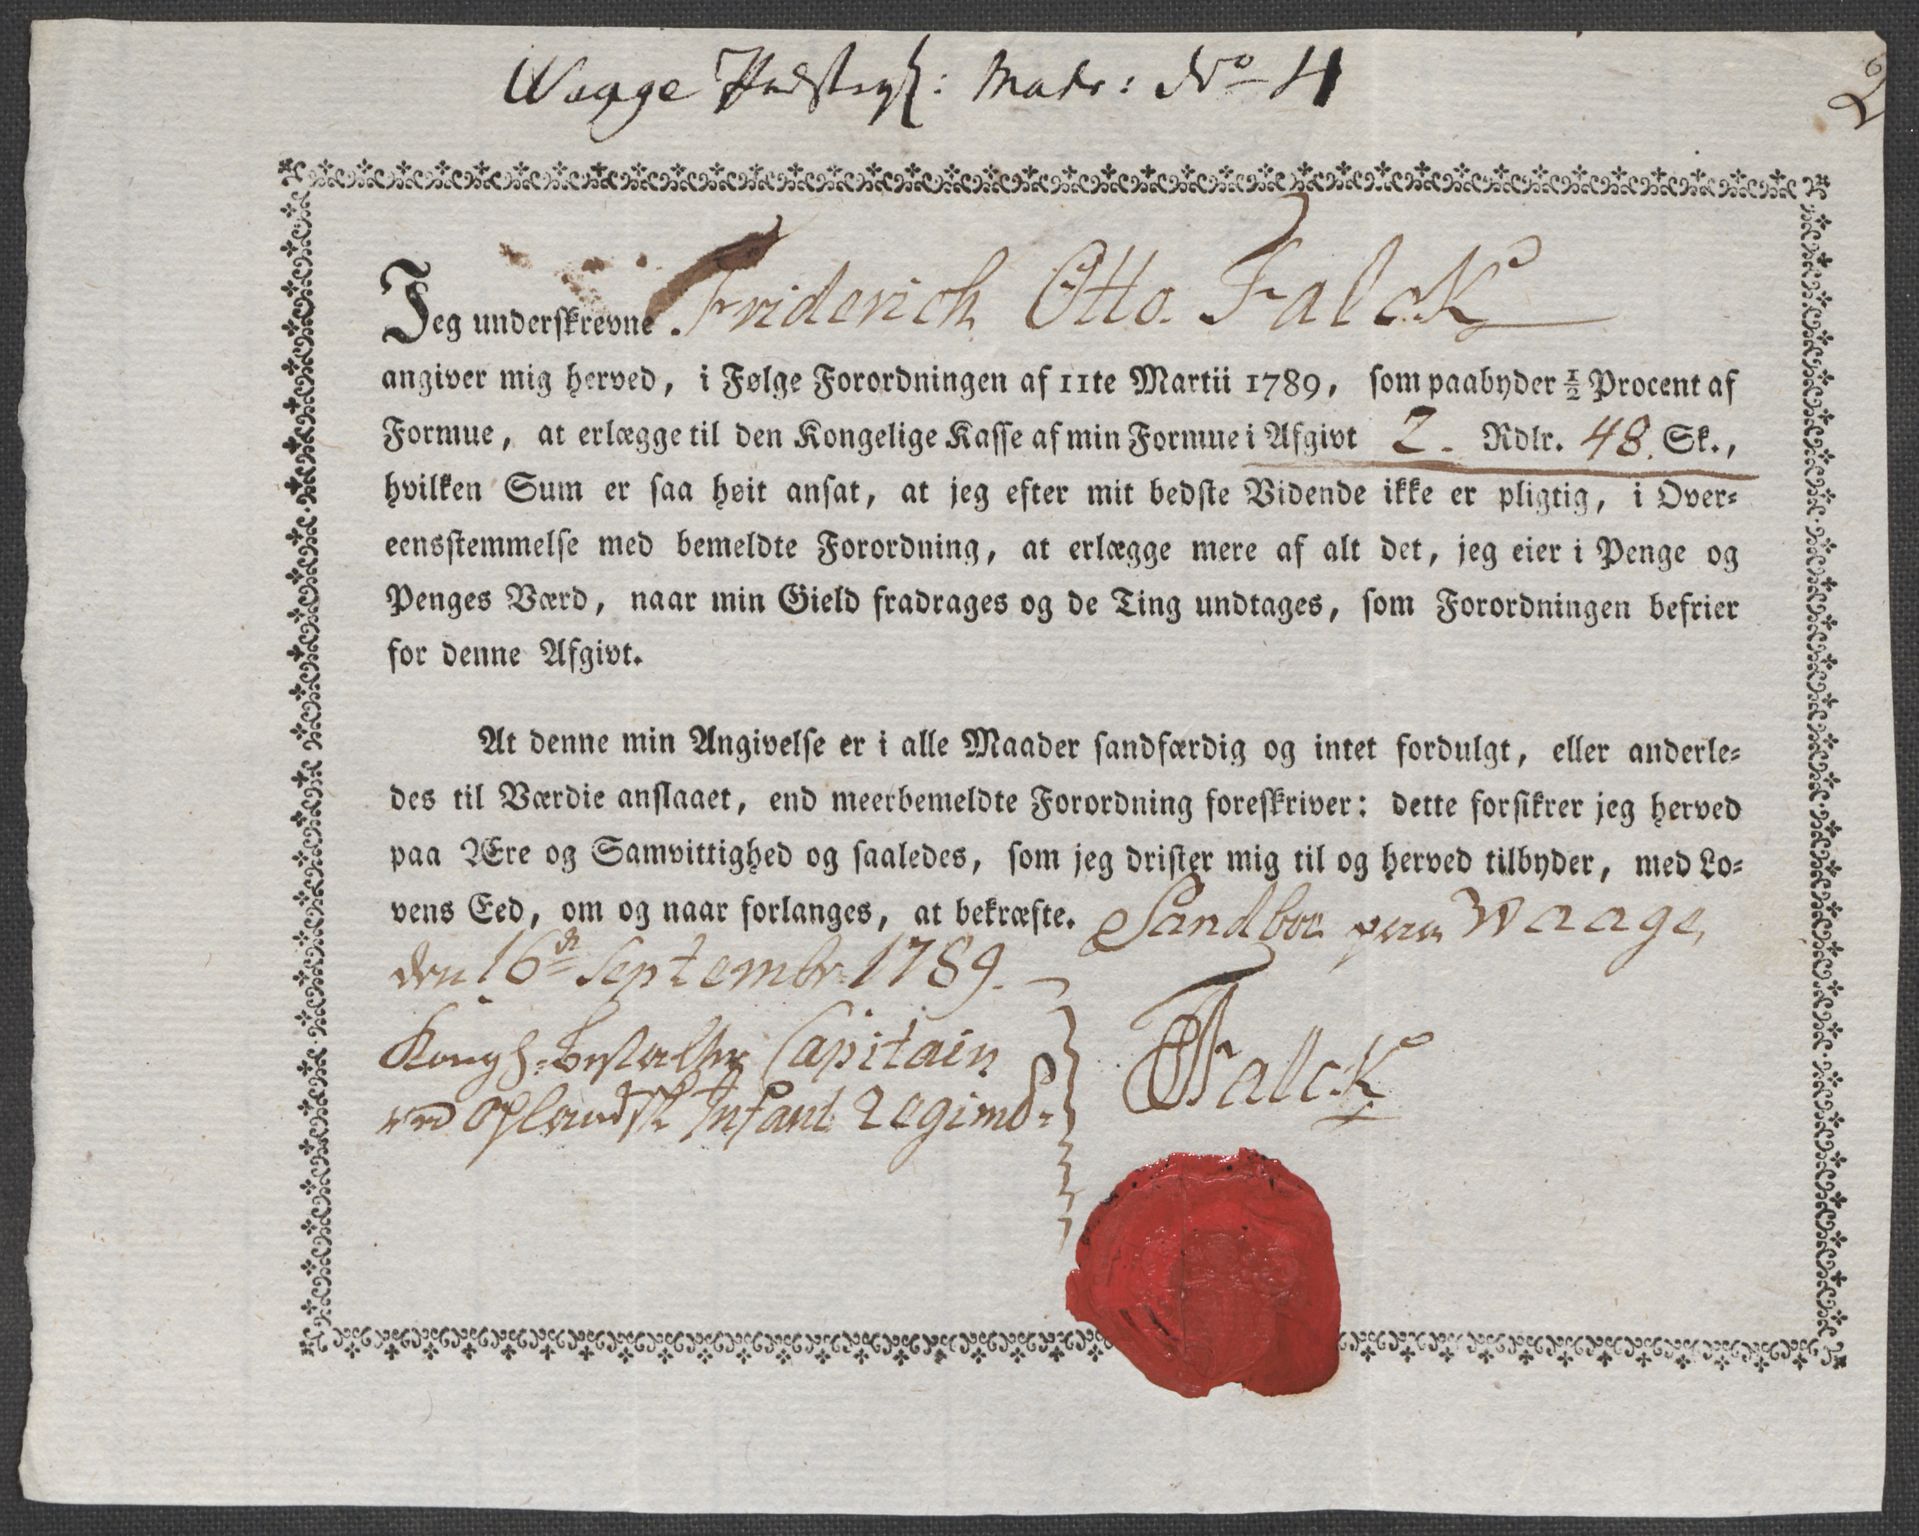 Waage Præstegl: Matr: No 4
2
Jeg underskrevne Friderich Otto Falck
angiver mig herved, i Følge Forordningen af 11te Martii 1789, som paabyder ½ Procent af
Formue, at erlægge til den Kongelige Kasse af min Formue i Afgivt 2. Rdlr. 48. Sk.,
hvilken Sum er saa høit ansat, at jeg efter mit bedste Vidende ikke er pligtig, i Over=
eensstemmelse med bemeldte Forordning, at erlægge mere af alt det, jeg eier i Penge og
Penges Værd, naar min Gield fradrages og de Ting undtages, som Forordningen befrier
for denne Afgivt.
At denne min Angivelse er i alle Maader sandfærdig og intet fordulgt, eller anderle=
des til Værdie anslaaet, end meerbemeldte Forordning foreskriver: dette forsikrer jeg herved
paa Ære og Samvittighed og saaledes, som jeg drister mig til og herved tilbyder, med Lo=
vens Eed, om og naar forlanges, at bekræfte. Sandboe paa Waage
den 16de Septembr. 1789.
Kongl: bestalter Capitain
ved Oplandsk Infant Regimd:
Falck